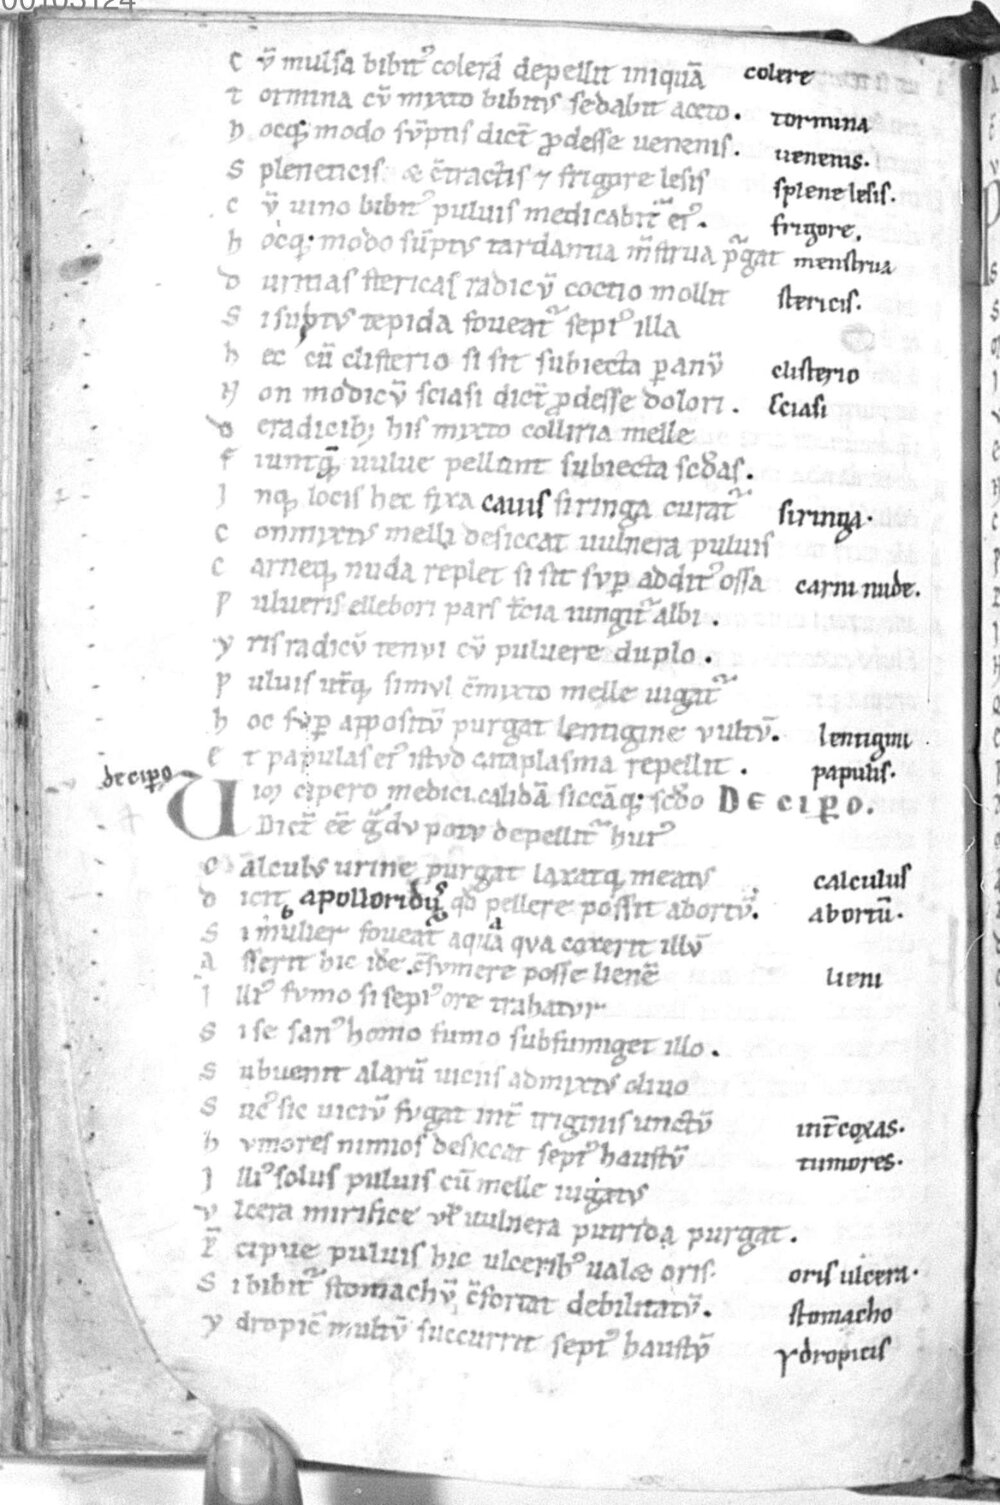 00103124
C ũ mulsa bibit᷒ colerā depellit iniquā colere
T ormina cū mixto bibitus sedabit aceto. tormina
h ocq; modo sūptis dict̄ ꝓdesse uenenis. uenenis.
S pleneticis & c̄tractis ⁊ frigore lesis splene lesis.
C ū uino bibit᷒ puluis medicabit᷒ eis. frigore.
h ocq; modo sūptus tardantia m̄strua p̄gat menstrua
D uritias stericas radicū coctio mollit stericis.
S i suptus tepida foueat᷒ sepi᷒ illa
h ec cū clisterio si sit subiecta ꝑ anū clisterio
N on modicū sciasi dict̄ ꝓdesse dolori. sciasi
D e radicib; his mixto colliria melle
F iuntq; uulue pellunt subiecta scđas.
I nq; locis hec fixa cauis siringa curat᷒ siringa.
C onmixtus melli desiccat uulnera puluis
C arneq; nuda replet si sit sup̄ addit᷒ ossa carni nude.
P ulueris ellebori pars t̄cia iungit᷒ albi.
Y ris radicū tenui cū puluere duplo.
P uluis utq; simul c̄mixto melle iugat᷒
h oc sup̄ appositū purgat lentigine vultū. lentigini
E t papulas et᷒ istud cataplasma repellit. papulis.
de cip̱o Vim cipero medici calidā siccāq; scđo DE CIP̱O.
Dict̄ eē g̃du potu depellit᷒ hui᷒
C alculus urine purgat laxatq; meatus calculus
D icit apolloridus qđ pellere possit abortū. abortū.
S i mulier foueat᷒ aqua qua coxerit illū
A sserit hic idē c̄sumere posse lienē lieni
I lli᷒ fumo si sepi᷒ ore trahatur
S i se san᷒ homo fumo subfumiget illo.
S ubuenit alarū uiciis admixtus oliuo
S ic uiciū fugat int̄ triginis unctū int̄ coxas.
h umores nimios desiccat sepi᷒ haustū tumores.
I lli᷒ solus puluis cū melle iugatus
V lcera mirifice ut uulnera putrida purgat.
P̄ cipue puluis hic ulcerib᷒ ualet oris oris ulcera.
S i bibit᷒ stomachū c̄fortat debilitatū. stomacho
Y dropic̄ multū succurrit sepi᷒ haustū ydropicis